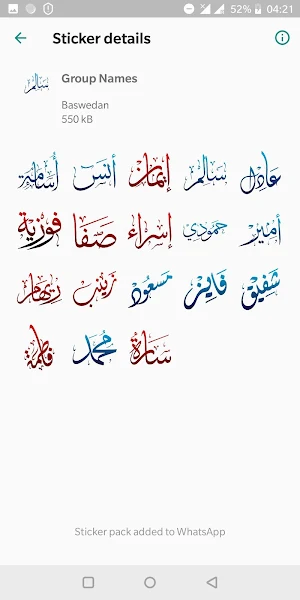 04:21
52%
Sticker details
Group Names
Baswedan
550 kB
عادل سالم إيمان أنس أسامة
أمير حمودي إسراء صفا فوزية
شفيق فايز مسعود زينب ريهام
سارة محمد فاطمة
Sticker pack added to WhatsApp